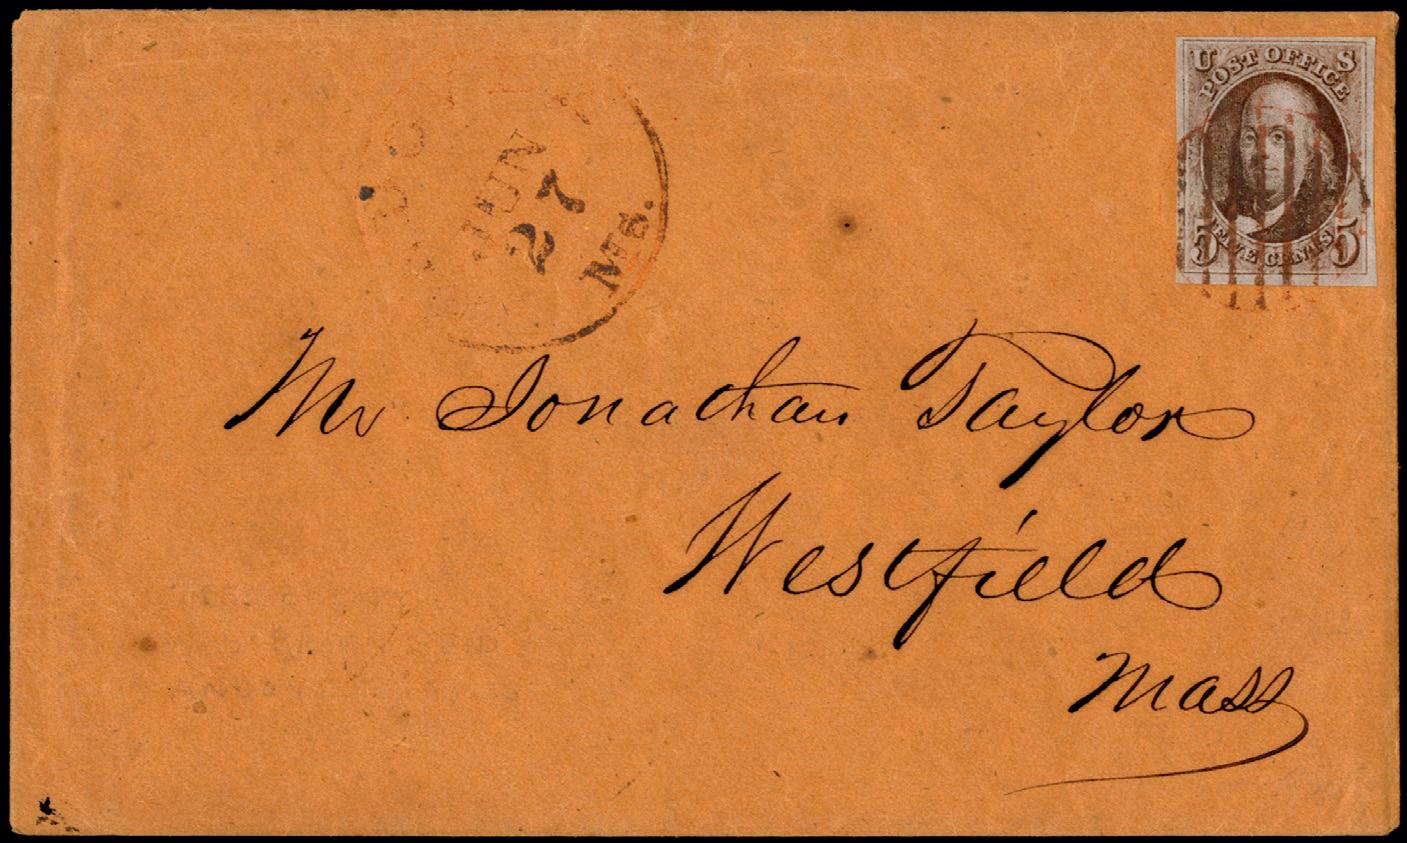 U S
POST OFFICE
5 FIVE CENTS 5
JUN
27
Ms.
Mr Jonathan Taylor
Westfield
Mass